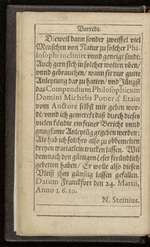 Vorrede.
Dieweil dann sonder zweiffel viel
Menschen von Natur zu solcher Phi-
losophi incliniret vnnd geneigt sindt:
Auch gern sich in solcher vben
vnnd gebrauchen / wann sie nur gute
Anleytung dar zu hatten / vnd Jüngst
das Compendium Philosophicum
Domini Michelis Potier d' Estain
vom Auctore selbst mir geben wor-
de / vnnd ich gemerckt das durch diesen
vielen ein feiner Bericht vnnd
Anleytug gegeben werden:
Als hab ich solches also zu
drucken lassen wöllen. Wil
demnach den günstigen Leser freündtlich
gebetten haben / Er wolle also diesen
Fleiß ihm günstig gefallen.
Datum Franckfurt den 24. Martii,
Anno 1610.
N. Steinius.